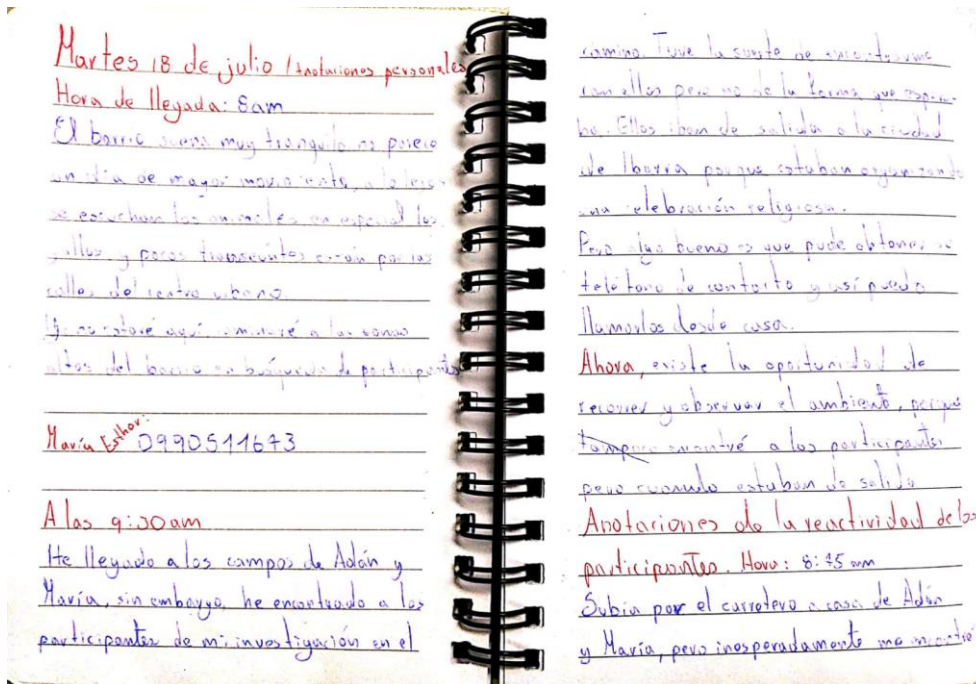 Martes 18 de julio / Anotaciones personales
Hora de llegada: 8am
El barrio suena muy tranquilo no parece
un día de mayor movimiento, a lo lejos
se escuchan los animales en especial los
gallos y pocos transeúntes están por las
calles del centro urbano.
aquí caminaré a las zonas
altas del barrio en búsqueda de participantes
María Esther: 0990511673
A las 9:30am
He llegado a los campos de Adán y
María, sin embargo, he encontrado a los
participantes de mi investigación en el
camino. Tuve la suerte de encontrarme
con ellos pero no de la forma que espera-
ba. Ellos iban de salida a la ciudad
de Ibarra porque estaban organizando
una celebración religiosa.
Pero algo bueno es que pude obtener su
teléfono de contacto y así puedo
llamarlos desde casa.
Ahora, existe la oportunidad de
recorrer y observar el ambiente, porque
encontré a los participantes
pero cuando estaban de salida
Anotaciones de la reactividad de los
participantes. Hora: 8:45 am
Subía por el carretero a casa de Adán
y María, pero inesperadamente me encontré